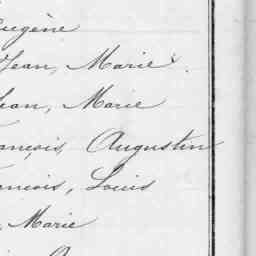 Eugène
Jean, Marie
Jean, Marie
François, Augustin
François, Louis
, Marie